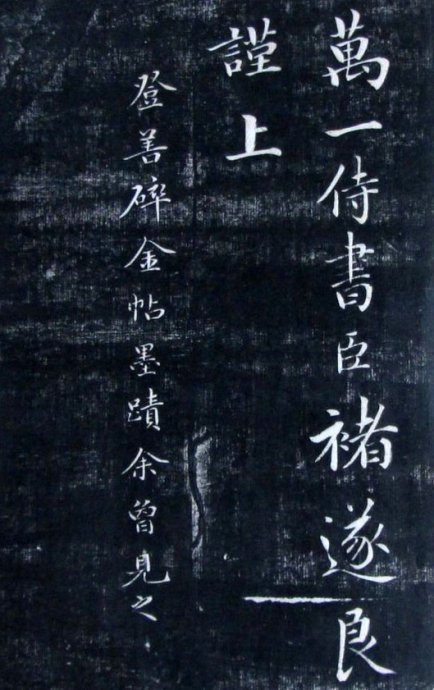 萬一侍書臣褚遂良
謹上
登善碎金帖墨蹟余曾見之